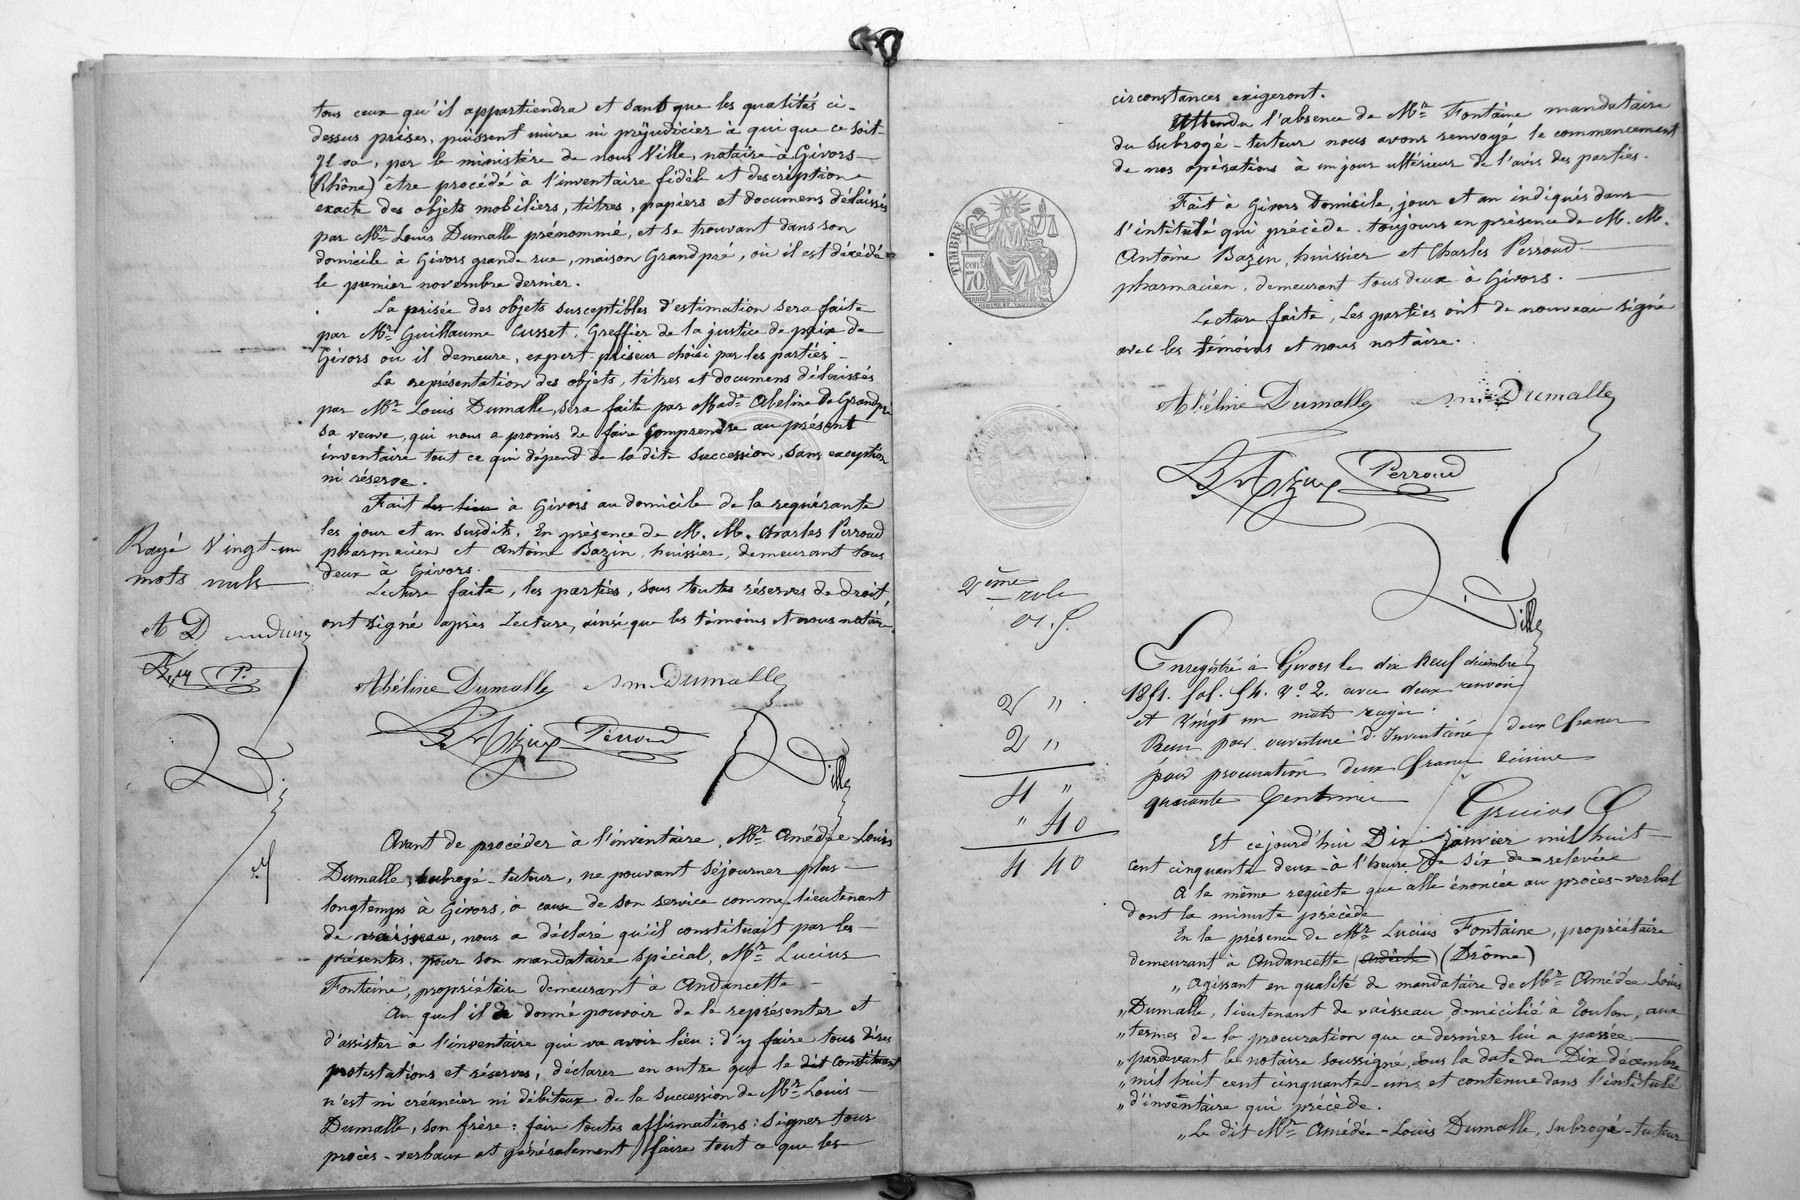 tous ceux qu'il appartiendra et sans que les qualités ci-
dessus prises, puissent nuire ni préjudicier à qui que ce soit
Il va, par le ministère de nous Ville, notaire à Givors
(Rhône) être procédé à l'inventaire fidèle et description
exacte des objets mobiliers, titres, papiers et documens délaissés
par Mr Louis Dumalle prénommé, et se trouvant dans son
domicile à Givors grande rue, maison Grandpré, où il est décédé
le premier novembre dernier.
La prisée des objets susceptibles d'estimation sera faite
par Mr Guillaume Cusset, Greffier de la justice de paix de
Givors où il demeure, expert priseur choisi par les parties -
La représentation des objets, titres et documens délaissés
par Mr Louis Dumalle, sera faite par Made Abeline De Grandpré
sa veuve, qui nous a promis de faire comprendre au présent
inventaire tout ce qui dépend de la dite succession, sans exception
ni réserve.
Fait à Givors au domicile de la requérante
les jour et an susdits. En présence de M. M. Charles Perroud
pharmacien et Antoine Bazin, huissier, demeurant tous
deux à Givors.
Lecture faite, les parties, sous toutes réserves de droit,
ont signé après Lecture, ainsi que les témoins et nous notaire.
Rayé Vingt-un
mots nuls
A D
P.
Abéline Dumalle Dumalle
Bazin Perroud
Ville
Avant de procéder à l'inventaire, Mr Amédée-Louis
Dumalle, subrogé-tuteur, ne pouvant séjourner plus
longtemps à Givors, à cause de son service comme lieutenant
de vaisseau, nous a déclaré qu'il constituait par les
présentes, pour son mandataire spécial, Mr Lucius
Fontaine, propriétaire demeurant à Andancette -
Au quel il donne pouvoir de le représenter et
d'assister à l'inventaire qui va avoir lieu : d'y faire tous dires
protestations et réserves, déclarer en outre que le dit constituant
n'est ni créancier ni débiteur de la succession de Mr Louis
Dumalle, son frère : faire toutes affirmations : signer tous
procès-verbaux et généralement faire tout ce que les
circonstances exigeront.
Attendu l'absence de Mr Fontaine mandataire
du subrogé-tuteur nous avons renvoyé le commencement
de nos opérations à un jour ultérieur de l'avis des parties.
Fait à Givors Domicile, jour et an indiqués dans
l'intitulé qui précède. toujours en présence de M. M.
Antoine Bazin, huissier et Charles Perroud
pharmacien, demeurant tous deux à Givors.
Lecture faite, Les parties ont de nouveau signé
avec les témoins et nous notaire.
TIMBRE
70
Abéline Dumalle Dumalle
Bazin Perroud
Ville
2ème
role
Enregistré à Givors le dix neuf décembre
1851. fol. 54. Vo 2. avec deux renvois
et Vingt un mots rayés.
Reçu pour ouverture d'Inventaire deux francs
pour procuration deux francs décime
quarante Centimes
2 "
2 "
4 "
" 40
4 40
Et cejourd'hui Dix janvier mil huit
cent cinquante deux à l'heure de six de relevée
A la même requête que celle énoncée au procès-verbal
dont la minute précède
En la présence de Mr Lucius Fontaine, propriétaire
demeurant à Andancette (Ardèche) (Drôme)
" Agissant en qualité de mandataire de Mr Amédée Louis
" Dumalle, lieutenant de vaisseau domicilié à Toulon, aux
" termes de la procuration que ce dernier lui a passée
" pardevant le notaire soussigné, sous la date du Dix décembre
" mil huit cent cinquante-un, et contenue dans l'intitulé
" d'inventaire qui précède.
" Le dit Mr Amédée-Louis Dumalle, subrogé-tuteur